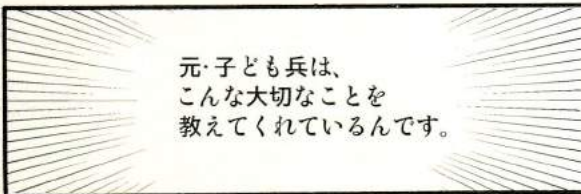 元・子ども兵は、
こんな大切なことを
教えてくれているんです。